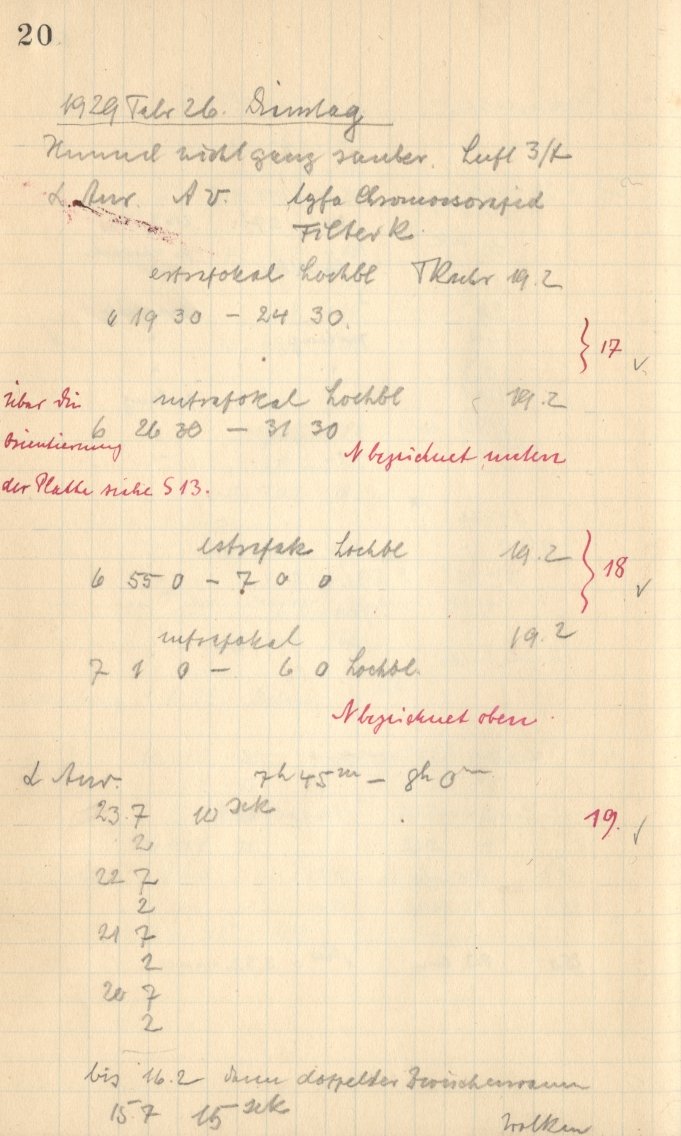 20
1929 Febr 26. Dienstag
Himmel nicht ganz sauber. Luft 3/4
α Aur. A V. Agfa Chromoisorapid
Filter R.
extrafokal Lochbl 19.2
6 19 30 – 24 30.
} 17 ✓
intrafokal Lochbl 19.2
6 26 30 – 31 30
über die
Orientierung
der Platte siehe S 13.
N bezeichnet unten
extrafok Lochbl 19.2
6 55 0 – 7 0 0
} 18 ✓
intrafokal 19.2
7 1 0 – 6 0 Lochbl.
N bezeichnet oben.
α Aur. 7h 45m – 8h 0m
23.7 10 sek
19. ✓
2
22 7
2
21 7
2
20 7
2
bis 16.2 dann doppelter Zwischenraum
15.7 15 sek
Wolken